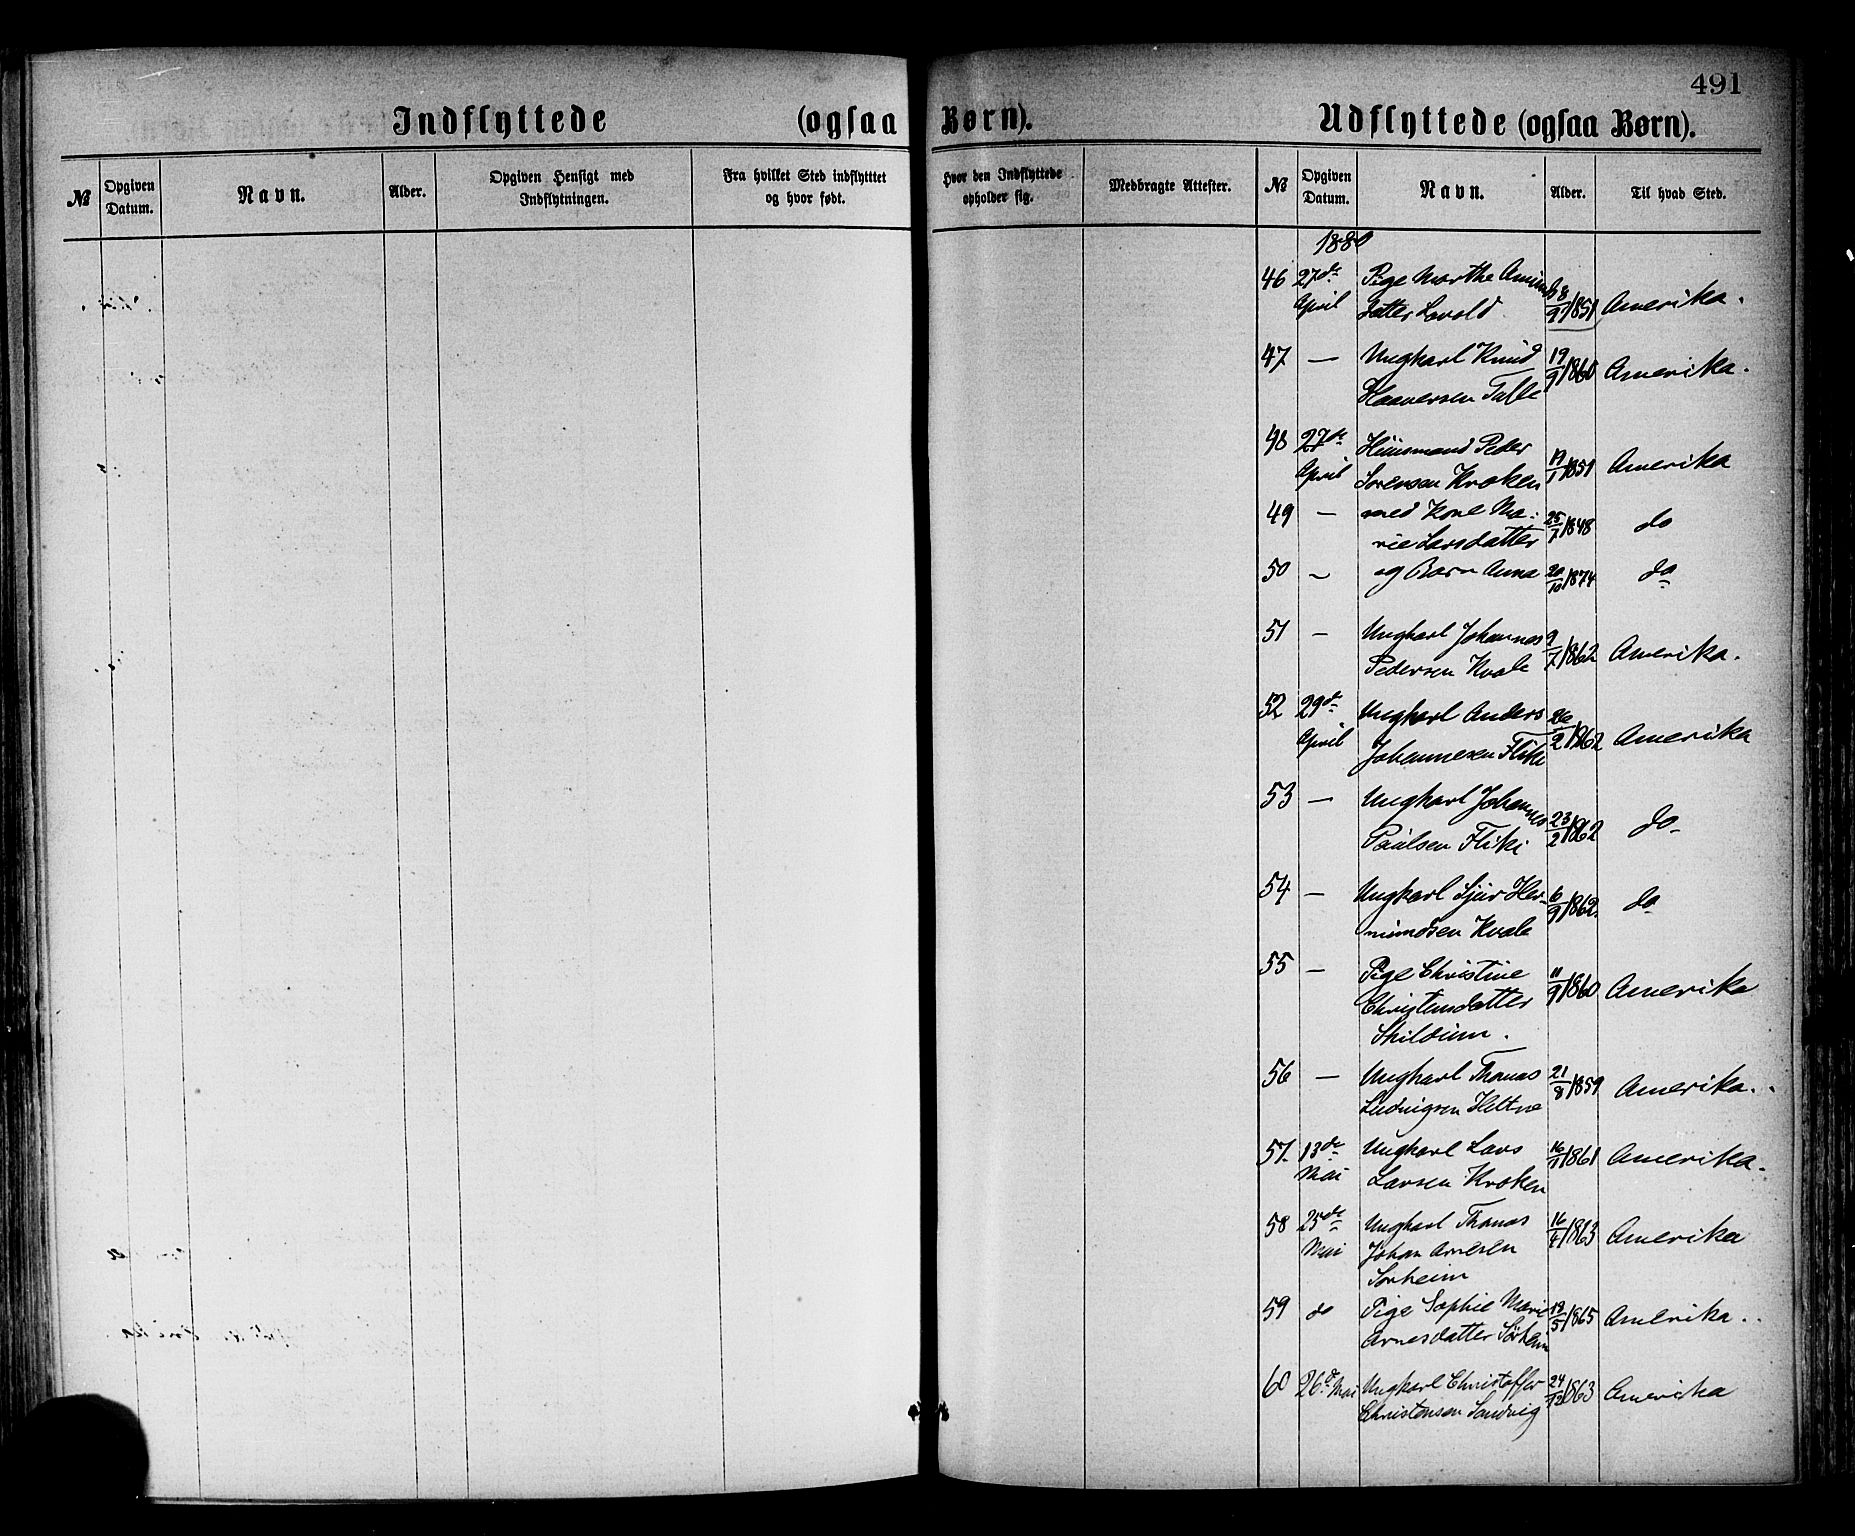 491
Indflyttede (ogsaa Børn). Udflyttede (ogsaa Børn).
№ Opgiven Datum. Navn. Alder. Opgiven Hensigt med Indflytningen. Fra hvilket Sted indflytttet og hvor født. Hvor den Indflyttede opholder sig. Medbragte Attester. № Opgiven Datum. Navn. Alder. Til hvad Sted.
1880
46 27de Pige Marthe Amund
April datter Lovold. 8/9 1851 Amerika.
47 — Ungkarl Knud 19/9 1860 Amerika.
Haaversen Talle
48 27de Huusmand Peder
April Sorensen Kroken 19/1 1851 Amerika
49 — med Kone Ma-
rie Larsdatter 25/7 1848 do
50 — og Barn Anna 20/10 1874 do
51 — Ungkarl Johannes 9/7 1862 Amerika.
Pedersen Kvale
52 29de Ungkarl Anders 26/2 1862 Amerika
April Johannesen Fliki
53 — Ungkarl Johannes 23/2 1862 do
Paulsen Fliki
54 — Ungkarl Sjur Her- 6/9 1862 do
mundsen Kvale
55 — Pige Christine 11/9 1860 Amerika
Christensdatter
Skildum.
56 — Ungkarl Thomas 21/8 1859 Amerika.
Ludvigsen Hettne
57. 13de Ungkarl Lars 16/1 1861 Amerika.
Mai Larsen Kroken
58 25de Ungkarl Thomas 16/4 1863 Amerika
Mai Johan Arnesen
Sorheim
59 do Pige Sophie Marie 19/5 1865 Amerika.
Arnesdatter Sørheim
60 26de Mai Ungkarl Christoffer 24/12 1863 Amerika
Christensen Sandvig